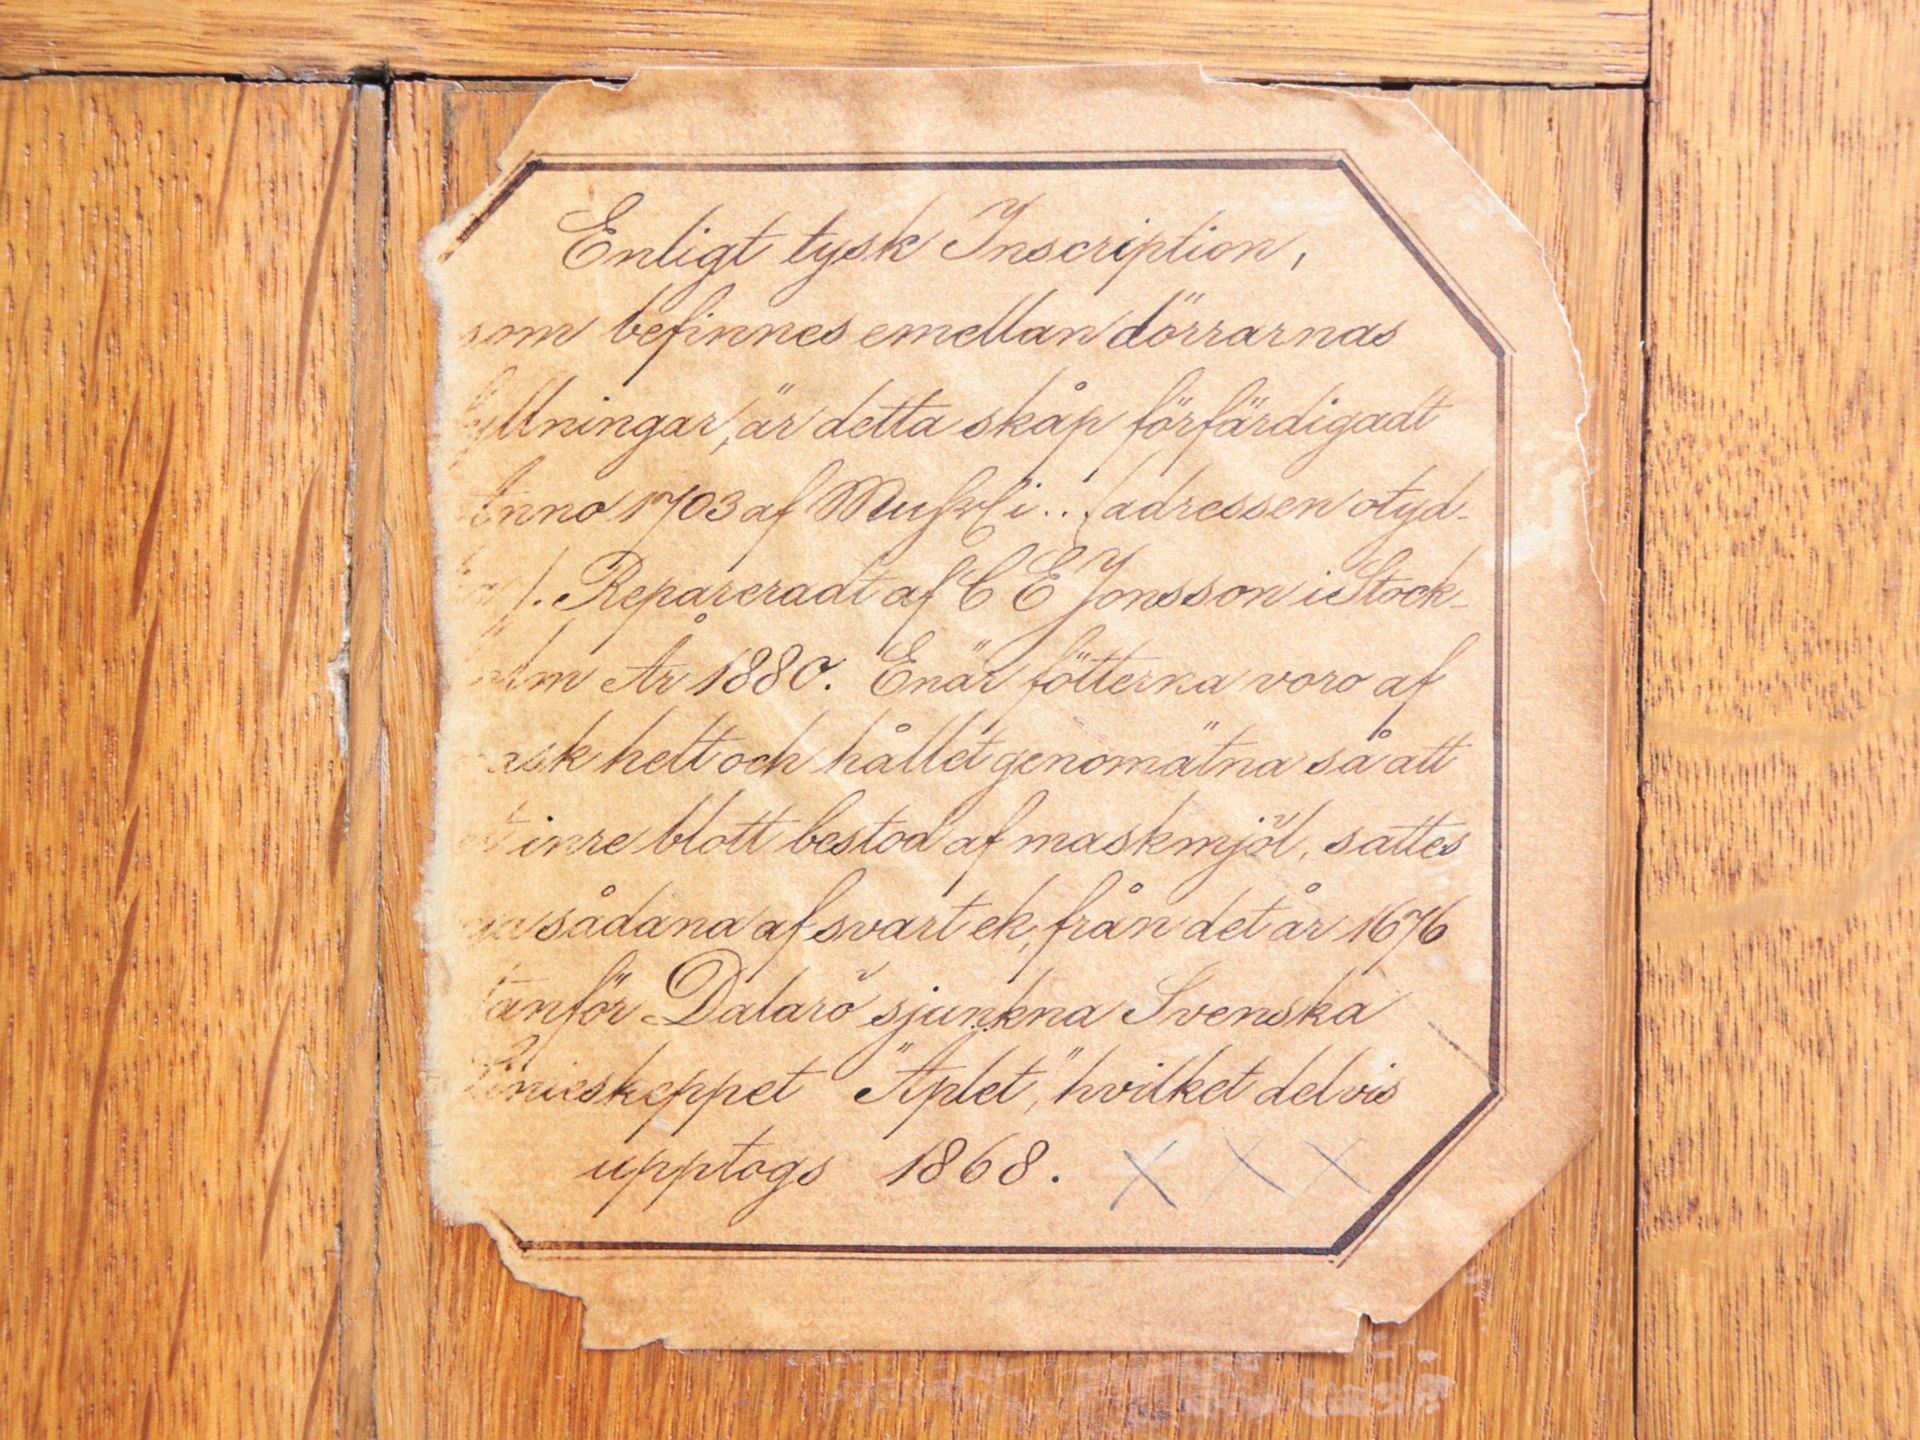 Enligt tysk Inscription,
som befinnes emellan dörrarnas
fyllningar, är detta skåp förfärdigadt
Anno 1703 af i... (adressen otyd-
). Repareradt af C E Jonsson i Stock-
holm År 1880. Enär fötterna voro af
mask helt och hållet genomätna så att
inre blott bestod af maskmjöl, sattes
sådana af svart ek, från det år 1676
tanför Dalarö sjunkna Svenska
Linieskeppet "Äplet", hvilket delvis
upptogs 1868. X X X